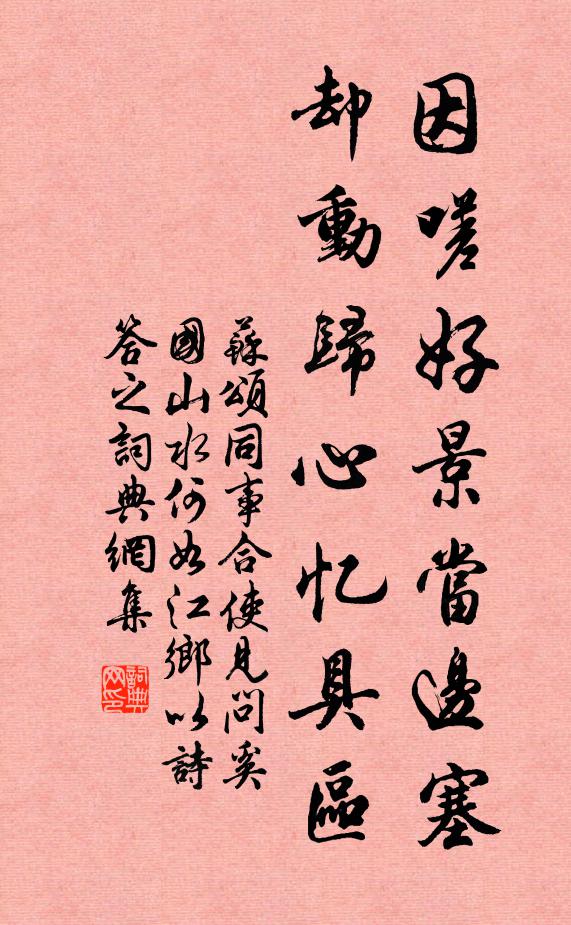 因嗟好景當邊塞
却動歸心忆具區
蘇頌同事合使見問奚
國山水何如江鄉以詩
答之詞典網集
詞典网印